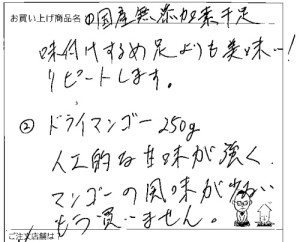 お買い上げ商品名 中国産無添加素干足
味付けするめ足よりも美味~!
リピートします。
② ドライマンゴー 250g
人工的な甘味が強く、
マンゴーの風味が少ない
もう買いません。
ご注文店舗は